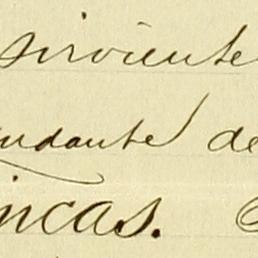 sirviente
udante de
incas.